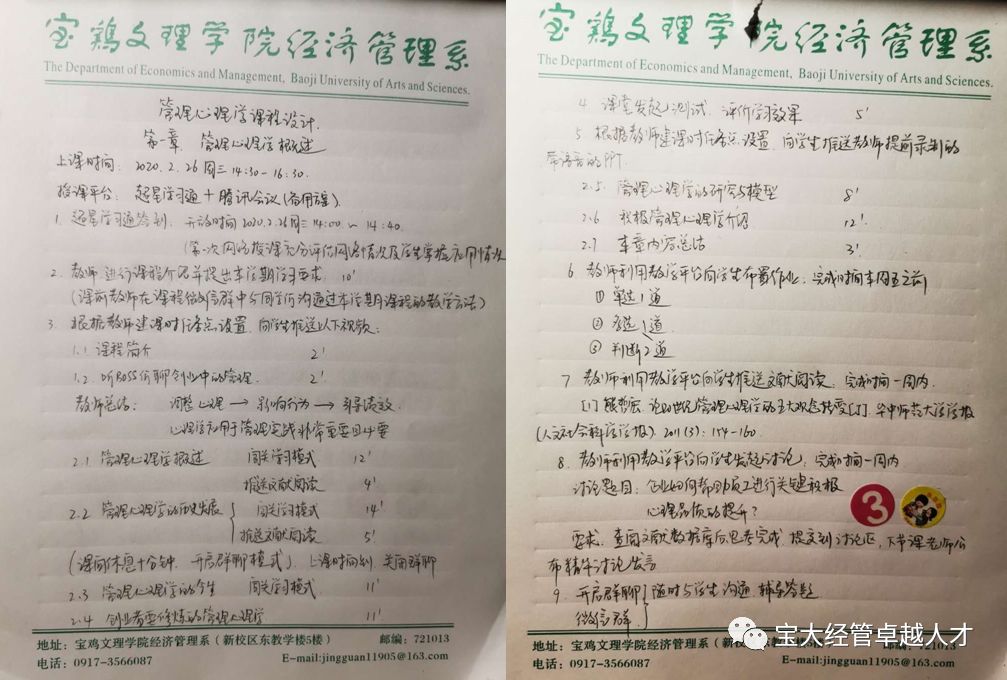 宝鸡文理学院经济管理系
The Department of Economics and Management, Baoji University of Arts and Sciences.
管理心理学课程设计.
第一章. 管理心理学概述
上课时间: 2020.2.26 周三 14:30-16:30.
授课平台: 超星学习通 + 腾讯会议(备用方案).
1. 超星学习通签到: 开放时间 2020.2.26周三 14:00 ~ 14:40.
(第一次网络授课充分评估网络情况及学生掌握应用情况
2. 教师进行课程介绍并提出本学期学习要求. 10'
(课前教师在课程微信群中与同学们沟通过本学期课程的教学方法)
3. 根据教师建课时任务点设置. 向学生推送以下视频:
1.1 课程简介 2'
1.2. 听BOSS们聊创业中的管理. 2'
教师总结: 调整心理 → 影响行为 → 引导绩效.
心理学应用于管理实践非常重要且必要
2.1 管理心理学概述 闯关学习模式 12'
推送文献阅读 4'
2.2 管理心理学的历史发展 闯关学习模式 14'
推送文献阅读 5'
(课间休息十分钟. 开启群聊模式). 上课时间到 关闭群聊
2.3 管理心理学的今生 闯关学习模式 11'
2.4 创业者要修炼的管理心理学 11'
地址: 宝鸡文理学院经济管理系 (新校区东教学楼5楼) 邮编: 721013
电话: 0917-3566087 E-mail:jingguan11905@163.com
宝鸡文理学院经济管理系
The Department of Economics and Management, Baoji University of Arts and Sciences.
4. 课堂发起小测试. 评价学习效果 5'
5. 根据教师建课时任务点设置. 向学生推送教师提前录制的
带语音的PPT.
2.5. 管理心理学的研究与模型 8'
2.6 积极管理心理学介绍 12'
2.7 本章内容总结 3'
6. 教师利用教学平台向学生布置作业: 完成时间本周五之前
① 单选 1道
② 多选 1道.
③ 判断 2道
7. 教师利用教学平台向学生推送文献阅读. 完成时间一周内.
[1] 熊哲宏. 论20世纪管理心理学的五大观念转变[J]. 华中师范大学学报
(人文社会科学学报). 2011(3): 154-160.
8. 教师利用教学平台向学生发起讨论: 完成时间一周内
讨论题目: 企业如何帮助员工进行关键积极
心理品质的提升?
要求. 查阅文献数据库后思考完成. 提交到讨论区, 下节课老师公
布精华讨论发言
9. 开启群聊 随时与学生沟通. 辅导答疑
微信群
地址: 宝鸡文理学院经济管理系 (新校区东
电话: 0917-3566087 E-mail:jingguan11905@163.com
3
宝大经管卓越人才